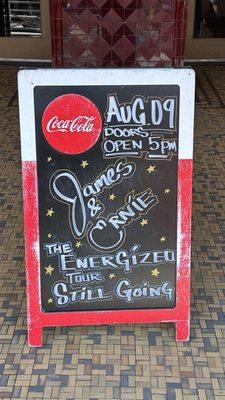 Coca-Cola
AUG 09
DOORS
OPEN 5PM
James
&
ERNIE
THE
ENERGIZED
TOUR
STILL GOING